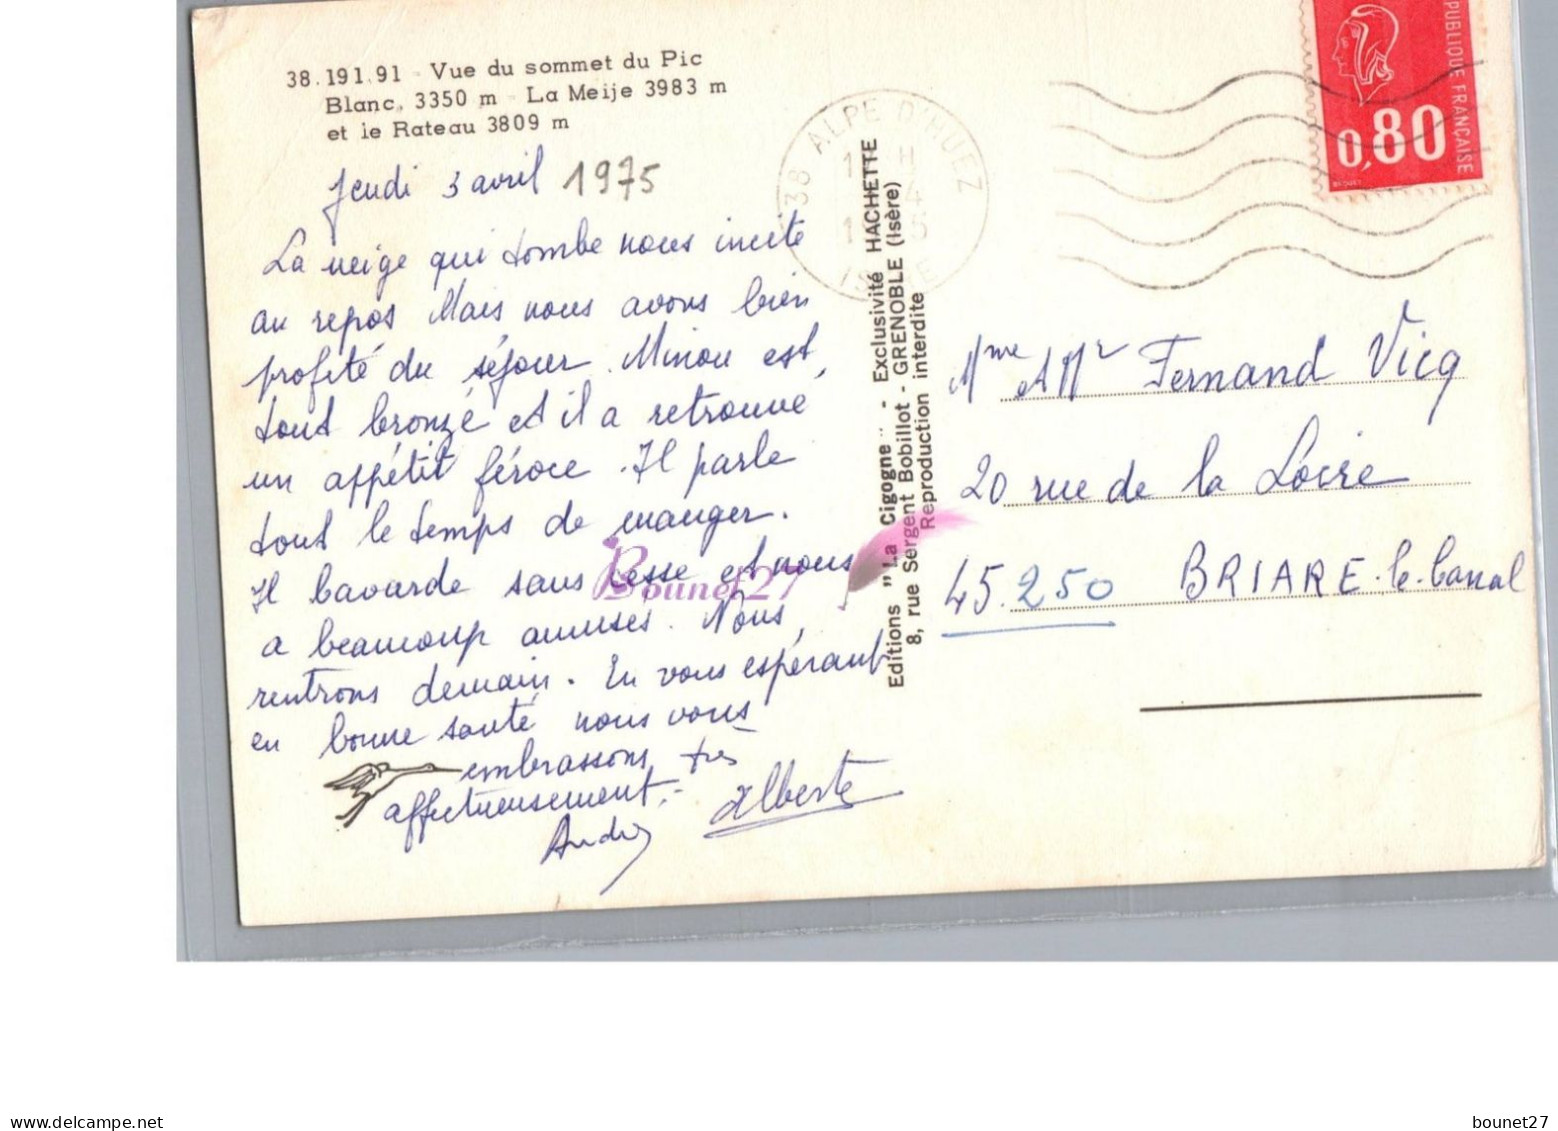 38.191.91 - Vue du sommet du Pic
Blanc, 3350 m - La Meije 3983 m
et le Rateau 3809 m
Jeudi 3 avril 1975
La neige qui tombe nous incite
au repos Mais nous avons bien
profité du séjour. Minou est
tout bronzé et il a retrouvé
un appétit féroce. Il parle
tout le temps de manger.
Il bavarde sans cesse et nous
a beaucoup amusés. Nous
rentrons demain. En vous espérant
en bonne santé nous vous
embrassons très
affectueusement.-
Alberte
Editions "La Cigogne" - Exclusivité HACHETTE
8, rue Sergent Bobillot - GRENOBLE (Isère)
Reproduction interdite
38 ALPE D'HUEZ
ISERE
PUBLIQUE FRANÇAISE
0,80
Mme & Mr Fernand Vicq
20 rue de la Loire
45.250 BRIARE-le-Canal
Bounet27
delcampe.net
bounet27